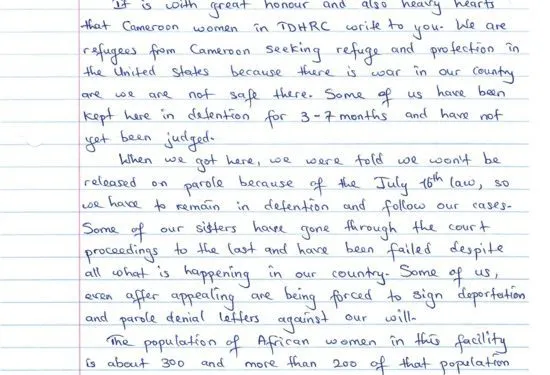 It is with great honour and also heavy hearts
that Cameroon women in TDHRC write to you. We are
refugees from Cameroon seeking refuge and protection in
the United States because there is war in our country
are we are not safe there. Some of us have been
kept here in detention for 3-7 months and have not
yet been judged.
When we got here, we were told we won't be
released on parole because of the July 16th law, so
we have to remain in detention and follow our cases.
Some of our sisters have gone through the court
proceedings to the last and have been failed despite
all what is happening in our country. Some of us,
even after appealing are being forced to sign deportation
and parole denial letters against our will.
The population of African women in this facility
is about 300 and more than 200 of that population